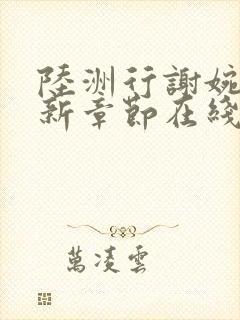 陸洲行謝婉
新章節在綫
萬凌雲